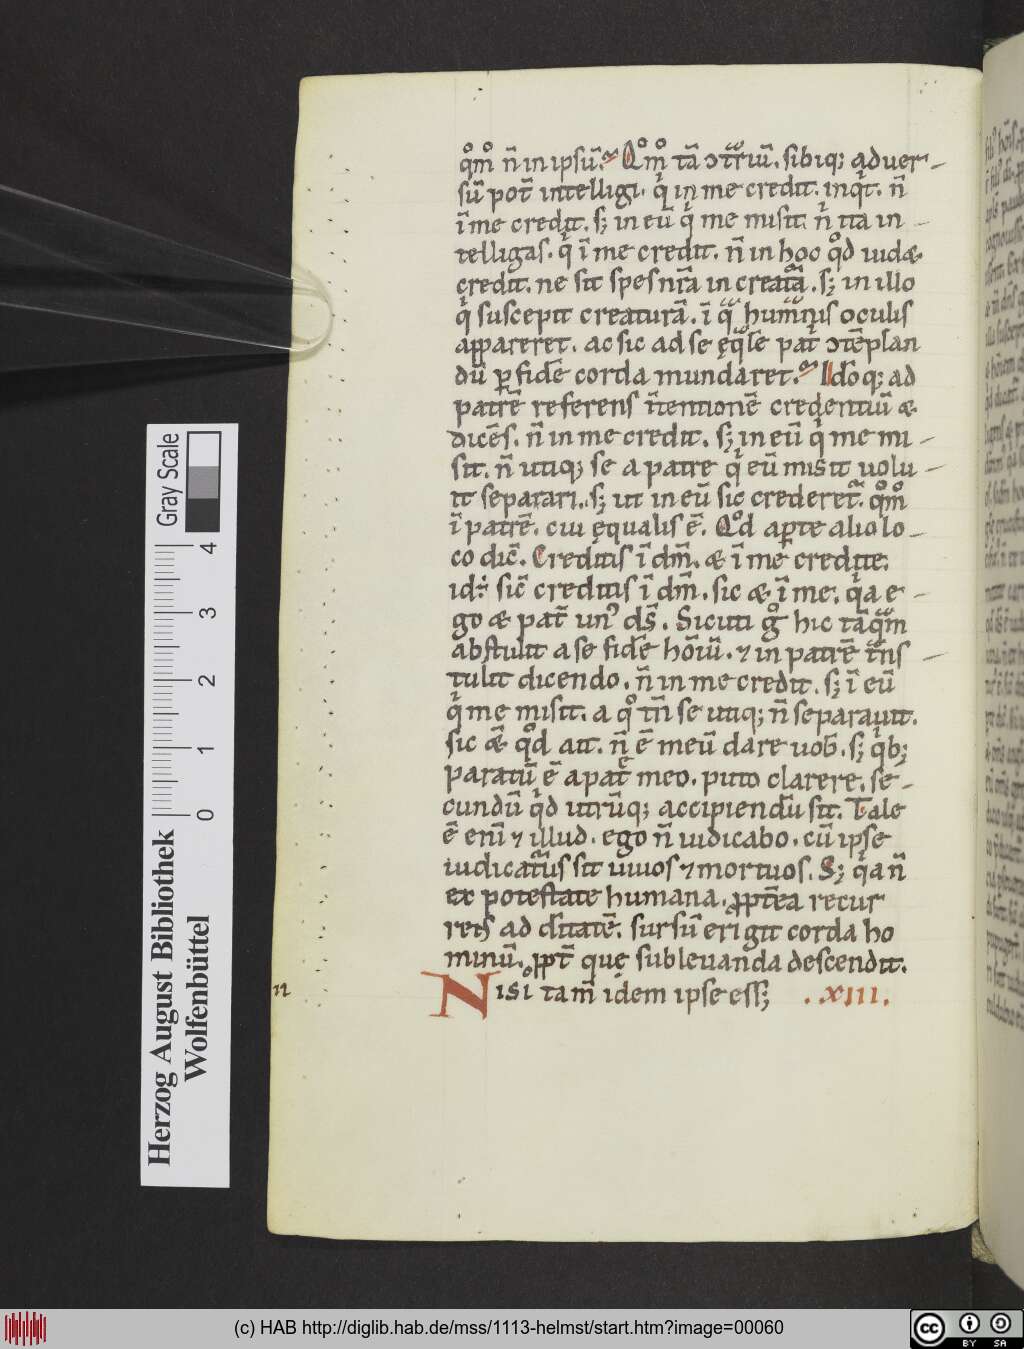 qm̊ n̄ in ipsū. Qm̊ tā ɔtrariū. sibiq; aduer-
sū pot̄ intelligi. q̇ in me credit. inqt. n̄
ī me credit. s; in eū q̇ me misit. n̄ ita in-
telligas. q̇ ī me credit. n̄ in hoc qd uidæ
credit. ne sit spes nr̄a in creata. s; in illo
q̇ suscepit creaturā. ī qua humanis oculis
appareret. ac sic ad se ęqlē pat̄ ɔtēplan
dū p fidē corda mundaret. Idōq; ad
patrē referens ītentionē credentiū æ
dicēs. n̄ in me credit. s; in eū q̇ me mi-
sit. n̄ utiq; se a patre q̇ eū misit uolu-
it separari. s; ut in eū sic crederet. qm̊
ī patrē. cui ęqualis ē. Qd aperte alio lo-
co dic̄. Creditis ī dm̄. æ ī me credite.
id: sic̄ creditis ī dm̄. sic æ ī me. qa e-
go æ pat̄ un' ds̄. Sicuti g̊ hic tāqm
abstulit a se fidē hōiū. ⁊ in patrē trans
tulit dicendo. n̄ in me credit. s; ī eū
q̇ me misit. a q̊ tn̄ se utiq; n̄ separauit.
sic æ qd ait. n̄ ē meū dare uob̄. s; qb;
paratū ē a pat̄ meo. puto clarere. se-
cundū qd utrūq; accipiendū sit. Tale
ē enī ⁊ illud. ego n̄ iudicabo. cū ipse
iudicaturus sit uiuos ⁊ mortuos. S; qa n̄
ex potestate humana. ppt̄ea recur
rens ad ditatē. sursū erigit corda ho
minū. ppt̄ que subleuanda descendit.
Nisi tam̄ idem ipse ess; . XIII.
Gray Scale
0 1 2 3 4
Herzog August Bibliothek
Wolfenbüttel
(c) HAB http://diglib.hab.de/mss/1113-helmst/start.htm?image=00060
cc BY SA